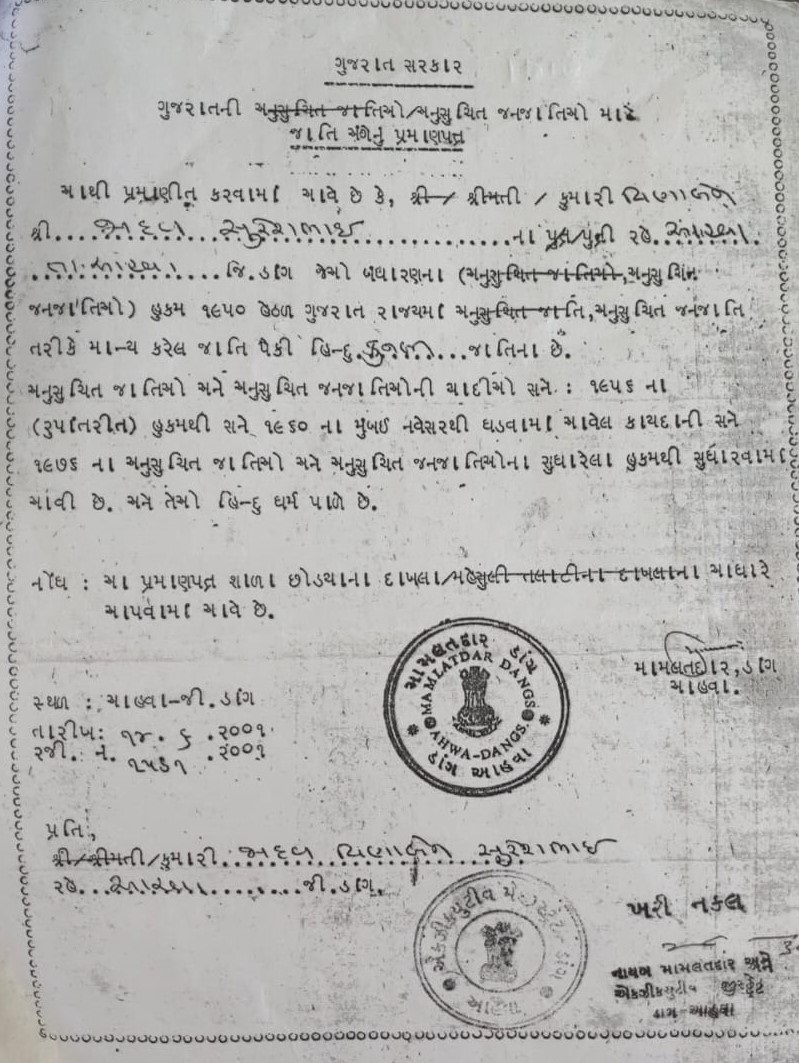 ગુજરાત સરકાર
ગુજરાતની અનુસુચિત જાતિઓ/અનુસુચિત જનજાતિઓ માટે
જાતિ અંગેનું પ્રમાણપત્ર
આથી પ્રમાણીત કરવામાં આવે છે કે, શ્રી / શ્રીમતી / કુમારી વિણાબેન
શ્રી....જાદવ...સુરેશભાઈ..............ના પુત્ર/પુત્રી રહે. આહવા.
તા. આહવા.....જિ.ડાંગ જેઓ બંધારણના (અનુસુચિત જાતિઓ,અનુસુચિત
જનજાતિઓ) હુકમ ૧૯૫૦ હેઠળ ગુજરાત રાજ્યમાં અનુસુચિત જાતિ,અનુસુચિત જનજાતિ
તરીકે માન્ય કરેલ જાતિ પૈકી હિન્દુ.કુનબી....જાતિના છે.
અનુસુચિત જાતિઓ અને અનુસુચિત જનજાતિઓની યાદીઓ સને : ૧૯૫૬ ના
(રુપાંતરીત) હુકમથી સને ૧૯૬૦ ના મુંબઈ નવેસરથી ઘડવામાં આવેલ કાયદાની સને
૧૯૭૬ ના અનુસુચિત જાતિઓ અને અનુસુચિત જનજાતિઓના સુધારેલા હુકમથી સુધારવામાં
આવી છે. અને તેઓ હિન્દુ ધર્મ પાળે છે.
નોંધ : આ પ્રમાણપત્ર શાળા છોડયાના દાખલા/મહેસુલી તલાટીના દાખલાના આધારે
આપવામાં આવે છે.
મામલતદાર ડાંગ
MAMLATDAR DANGS
AHWA-DANGS.
ડાંગ આહવા
મામલતદાર,ડાંગ
આહવા.
સ્થળ : આહવા-જી.ડાંગ
તારીખ: ૧૪.૬.૨૦૦૧
રજી. નં. ૧૫૭૧ .૨૦૦૧
પ્રતિ,
શ્રી/શ્રીમતી/કુમારી..જાદવ વિણાબેન સુરેશભાઈ
રહે...આહવા........જી.ડાંગ.
એકઝીકયુટીવ મેજીસ્ટ્રેટ ડાંગ
આહવા
ખરી નકલ
નાયબ મામલતદાર અને
એકઝીકયુટીવ મેજીસ્ટ્રેટ
ડાંગ-આહવા